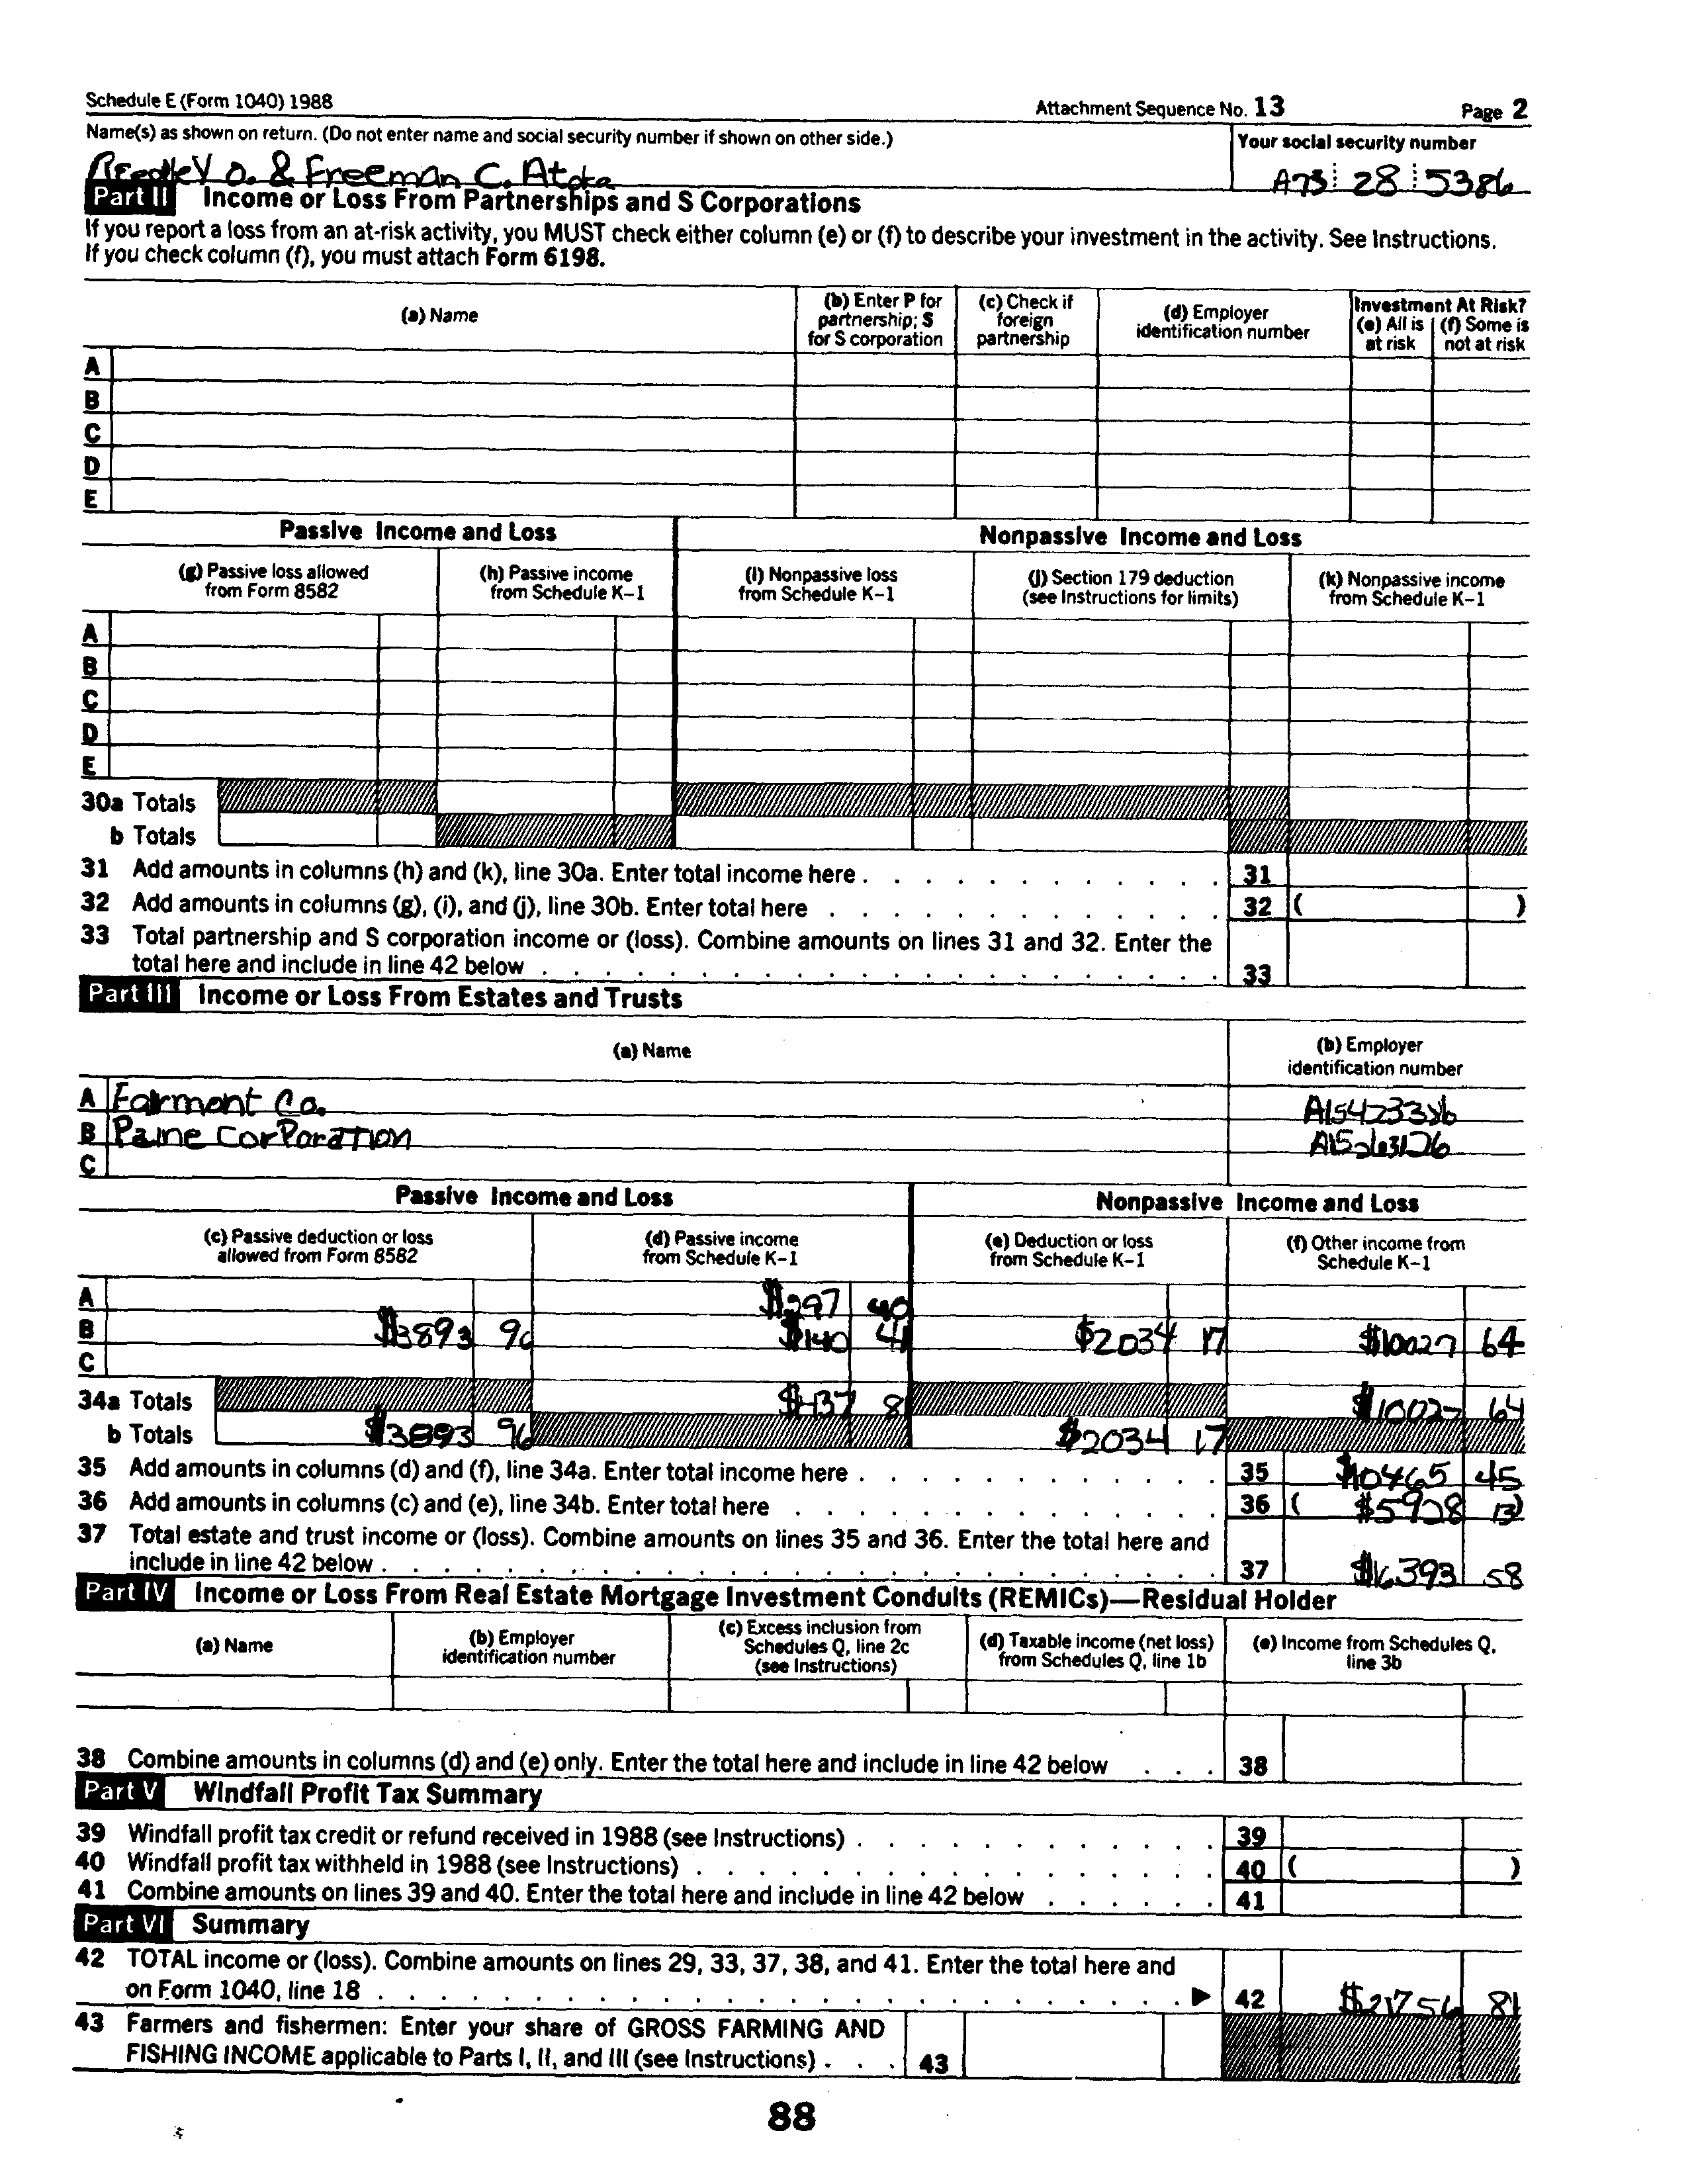 Schedule E (Form 1040) 1988 Attachment Sequence No. 13 Page 2
Name(s) as shown on return. (Do not enter name and social security number if shown on other side.) Your social security number
O. & Freeman C. Atoka A73 28 5386
Part II Income or Loss From Partnerships and S Corporations
If you report a loss from an at-risk activity, you MUST check either column (e) or (f) to describe your investment in the activity. See Instructions.
If you check column (f), you must attach Form 6198.
(a) Name (b) Enter P for partnership; S for S corporation (c) Check if foreign partnership (d) Employer identification number Investment At Risk? (e) All is at risk (f) Some is not at risk
A
B
C
D
E
Passive Income and Loss Nonpassive Income and Loss
(g) Passive loss allowed from Form 8582 (h) Passive income from Schedule K-1 (i) Nonpassive loss from Schedule K-1 (j) Section 179 deduction (see Instructions for limits) (k) Nonpassive income from Schedule K-1
A
B
C
D
E
30a Totals
b Totals
31 Add amounts in columns (h) and (k), line 30a. Enter total income here . . . . . . . . . . . . 31
32 Add amounts in columns (g), (i), and (j), line 30b. Enter total here . . . . . . . . . . . . . 32 ( )
33 Total partnership and S corporation income or (loss). Combine amounts on lines 31 and 32. Enter the
total here and include in line 42 below . . . . . . . . . . . . . . . . . . . . . . 33
Part III Income or Loss From Estates and Trusts
(a) Name (b) Employer identification number
A Fairmont Co. A15423386
B Paine Corporation A15263126
C
Passive Income and Loss Nonpassive Income and Loss
(c) Passive deduction or loss allowed from Form 8582 (d) Passive income from Schedule K-1 (e) Deduction or loss from Schedule K-1 (f) Other income from Schedule K-1
A $297 40
B $3893 96 $140 41 $2034 17 $10027 64
C
34a Totals $437 81 $10027 64
b Totals $3893 96 $2034 17
35 Add amounts in columns (d) and (f), line 34a. Enter total income here . . . . . . . . . . . . 35 $10465 45
36 Add amounts in columns (c) and (e), line 34b. Enter total here . . . . . . . . . . . . . . 36 ( $5928 13)
37 Total estate and trust income or (loss). Combine amounts on lines 35 and 36. Enter the total here and
include in line 42 below . . . . . . . . . . . . . . . . . . . . . . . . . . . 37 $16393 58
Part IV Income or Loss From Real Estate Mortgage Investment Conduits (REMICs)—Residual Holder
(a) Name (b) Employer identification number (c) Excess inclusion from Schedules Q, line 2c (see Instructions) (d) Taxable income (net loss) from Schedules Q, line 1b (e) Income from Schedules Q, line 3b
38 Combine amounts in columns (d) and (e) only. Enter the total here and include in line 42 below . . . 38
Part V Windfall Profit Tax Summary
39 Windfall profit tax credit or refund received in 1988 (see Instructions) . . . . . . . . . . . . 39
40 Windfall profit tax withheld in 1988 (see Instructions) . . . . . . . . . . . . . . . . . 40 ( )
41 Combine amounts on lines 39 and 40. Enter the total here and include in line 42 below . . . . . . 41
Part VI Summary
42 TOTAL income or (loss). Combine amounts on lines 29, 33, 37, 38, and 41. Enter the total here and
on Form 1040, line 18 . . . . . . . . . . . . . . . . . . . . . . . . . . ▶ 42 $21756 81
43 Farmers and fishermen: Enter your share of GROSS FARMING AND
FISHING INCOME applicable to Parts I, II, and III (see Instructions) . . . 43
88